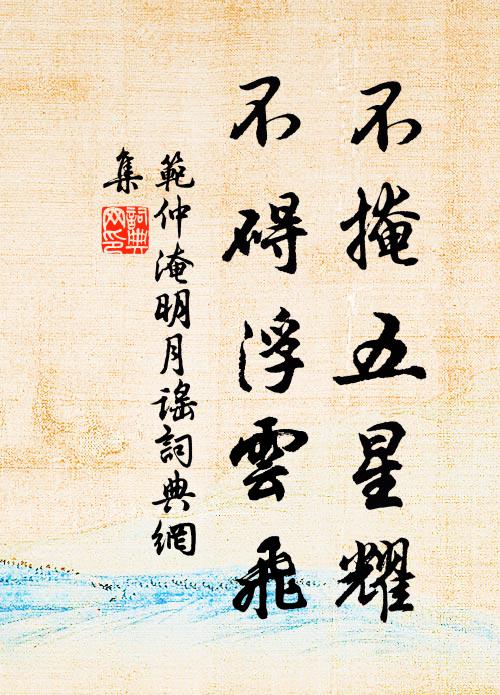 不掩五星耀
不碍浮雲飛
範仲淹明月謠詞典網
集
詞典
网印